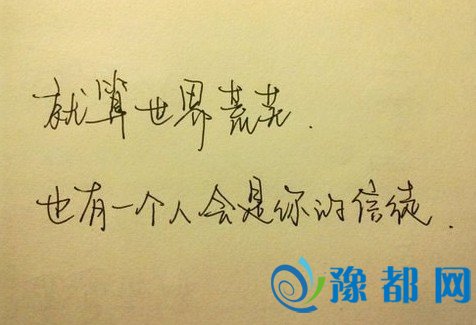 就算世界荒芜.
也有一个人会是你的信徒.
豫都网